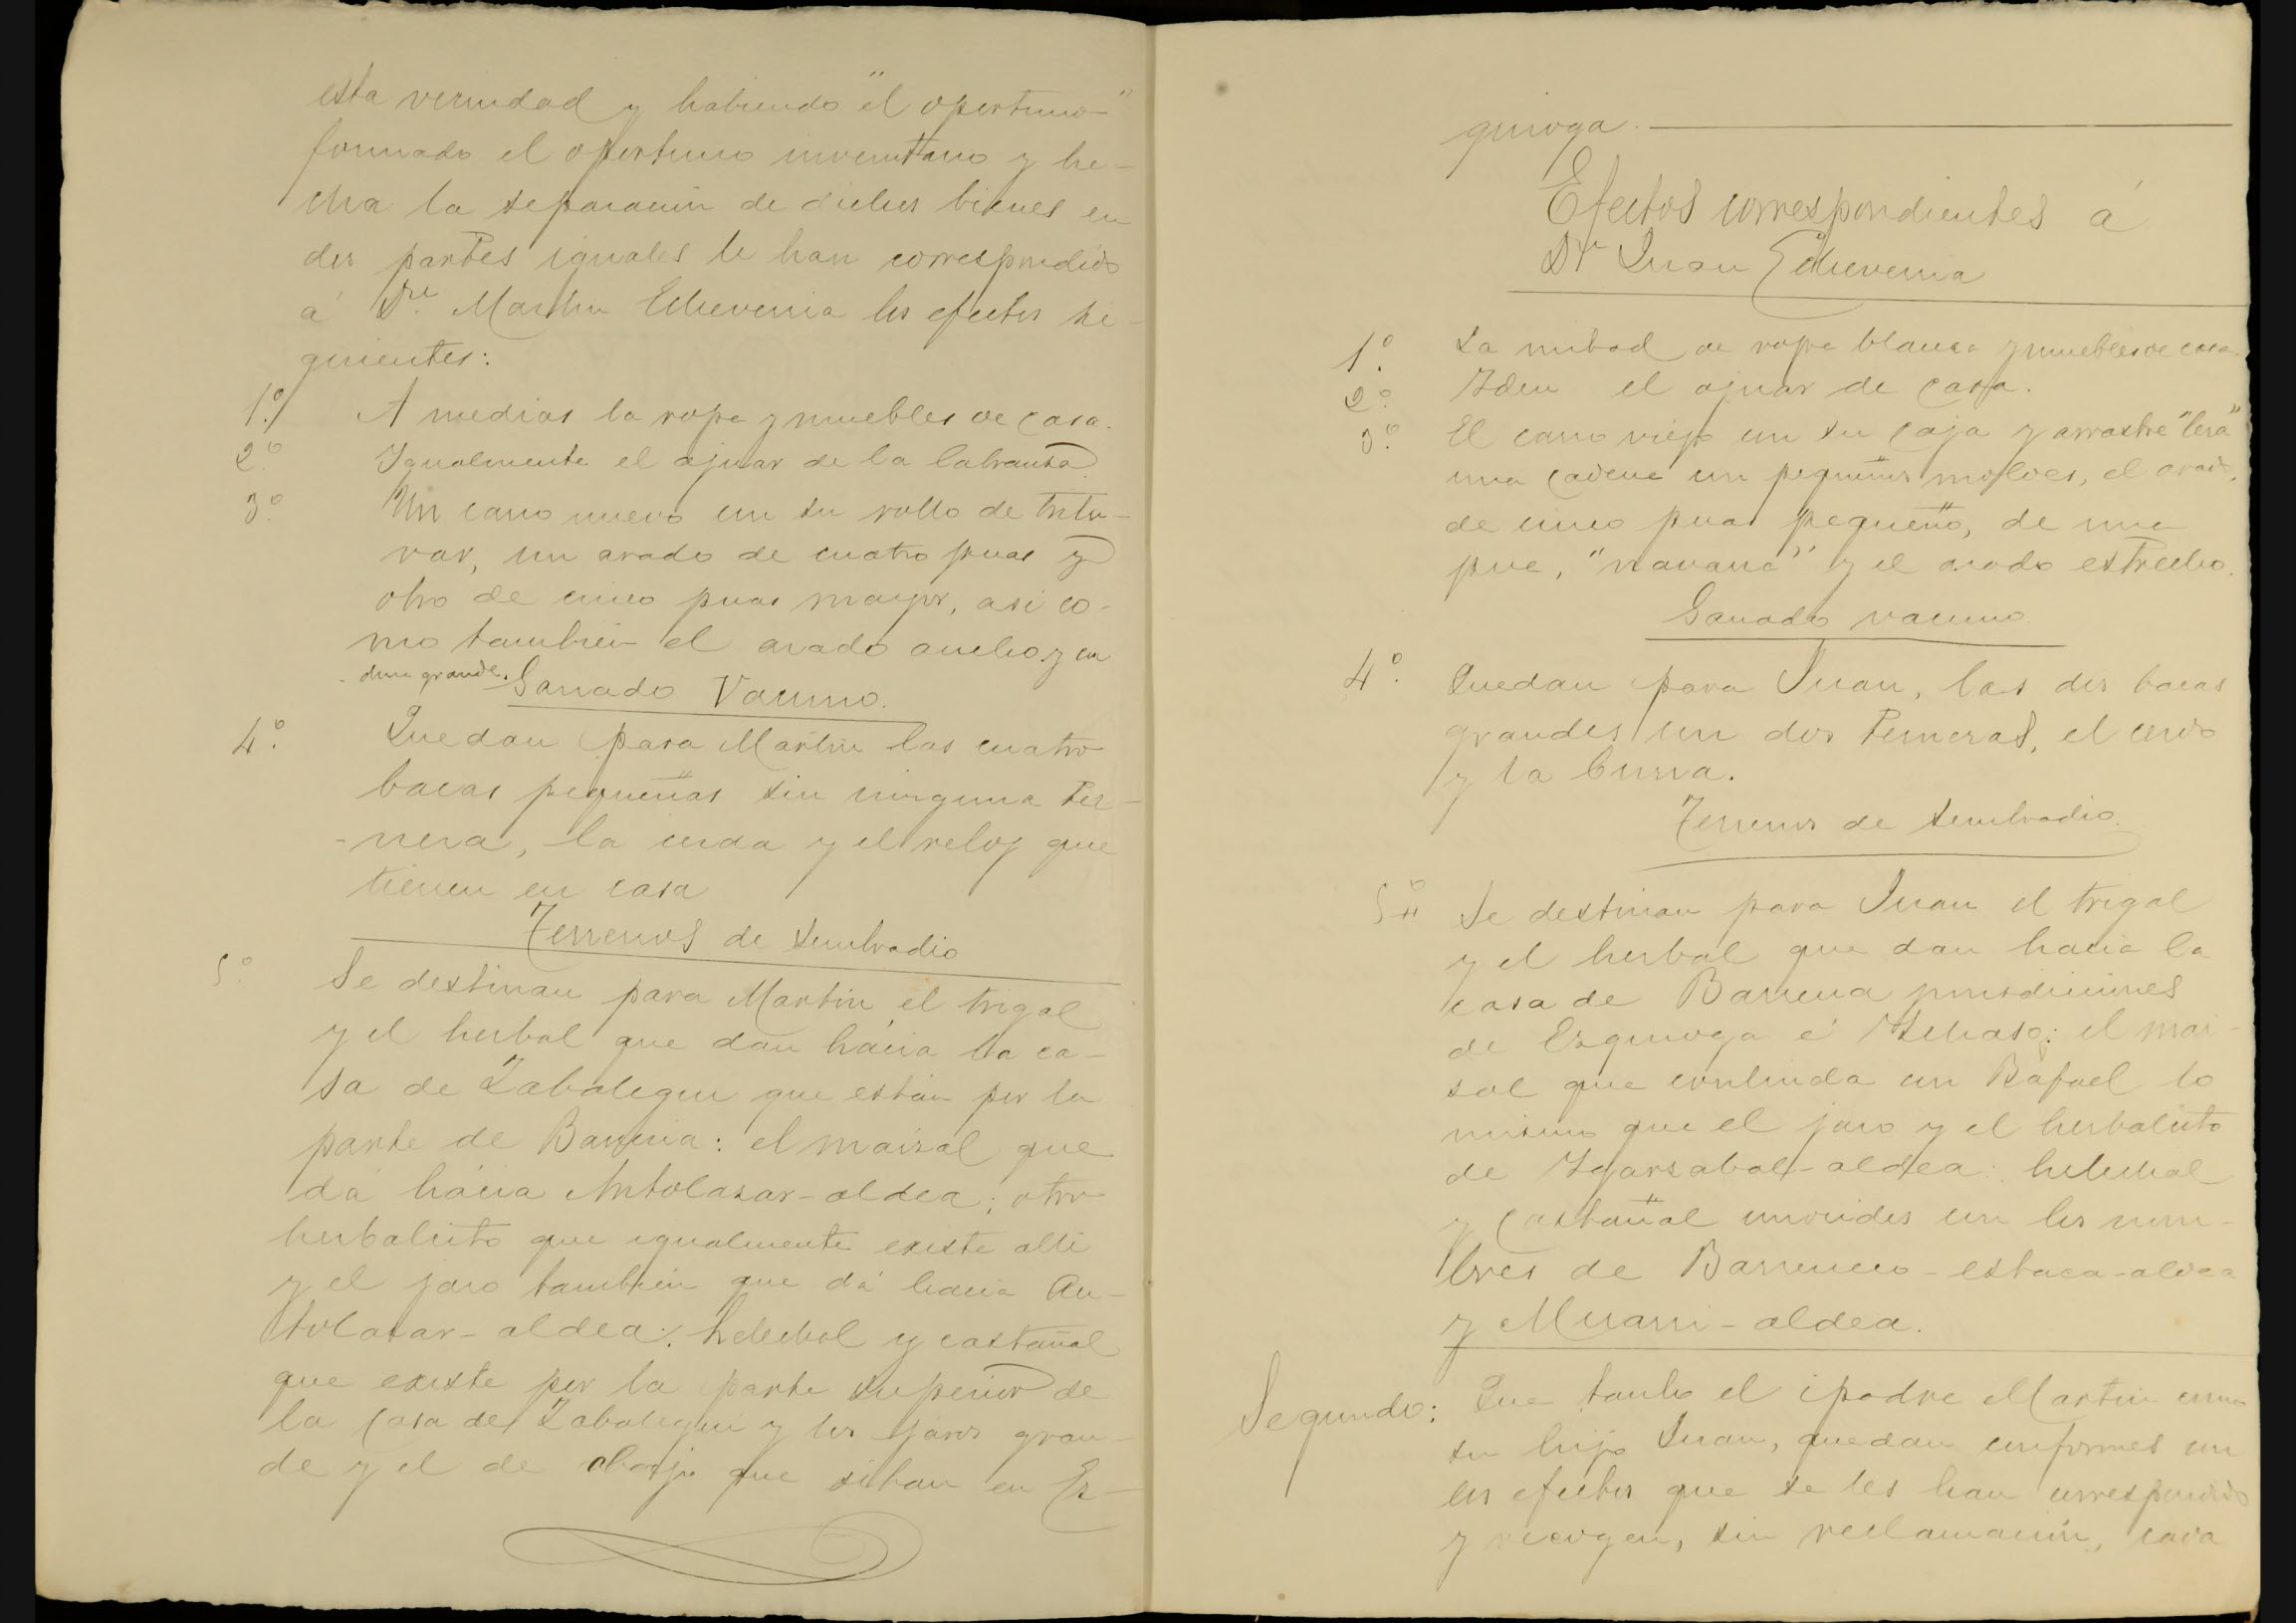 esta vecindad y habiendo "el oportuno"
formado el oportuno inventario y he-
cha la separación de dichos bienes en
dos partes iguales le han correspondido
á Dn. Martin Echeverria los efectos si-
guientes:
1º. A medias la ropa y muebles de casa.
2º. Igualmente el ajuar de la labranza
3º. Un carro nuevo con su rollo de tritu-
rar, un arado de cuatro puas y
otro de cinco puas mayor, asi co-
mo tambien el arado ancho y ca
dena grande.
Ganado Vacuno.
4º. Quedan para Martin las cuatro
bacas pequeñas sin ninguna ter-
-nera, la cerda y el reloj que
tienen en casa
Terrenos de sembradio
5º. Se destinan para Martin el trigal
y el herbal que dan hácia la ca-
sa de Zabalegui que están por la
parte de Barrena: el maizal que
dá hácia Antolazar-aldea; otro
herbalcito que igualmente existe alli
y el jaro tambien que dá hacia An-
tolazar-aldea: helechal y castañal
que existe por la parte superior de
la casa de Zabalegui y los jaros gran-
de y el de abajo que sitan en Ez-
quioga.
Efectos correspondientes á
Dn Juan Echeverria
1º. La mitad de ropa blanca y muebles de casa.
2º. Idem el ajuar de casa.
3º. El carro viejo con su caja y arrastre "lera"
una cadena con pequeños moldes, el arado
de cinco puas pequeño, de una
pua, "navarra" y el arado estrecho.
Ganado vacuno
4º. Quedan para Juan, las dos bacas
grandes con dos terneras, el cerdo
y la burra.
Terrenos de sembradio.
5º Se destinan para Juan el trigal
y el herbal que dan hacia la
casa de Barrena jurisdicciones
de Ezquioga é Ichaso: el mai-
zal que conlinda con Rafael lo
mismo que el jaro y el herbalcito
de Igarzabal-aldea: helechal
y castañal conocidos con los nom-
bres de Barrencco-estaca-aldea
y Muarri-aldea.
Segundo: Que tanto el padre Martin como
su hijo Juan, quedan conformes con
los efectos que se les han correspondido
y recogen, sin reclamación, cada